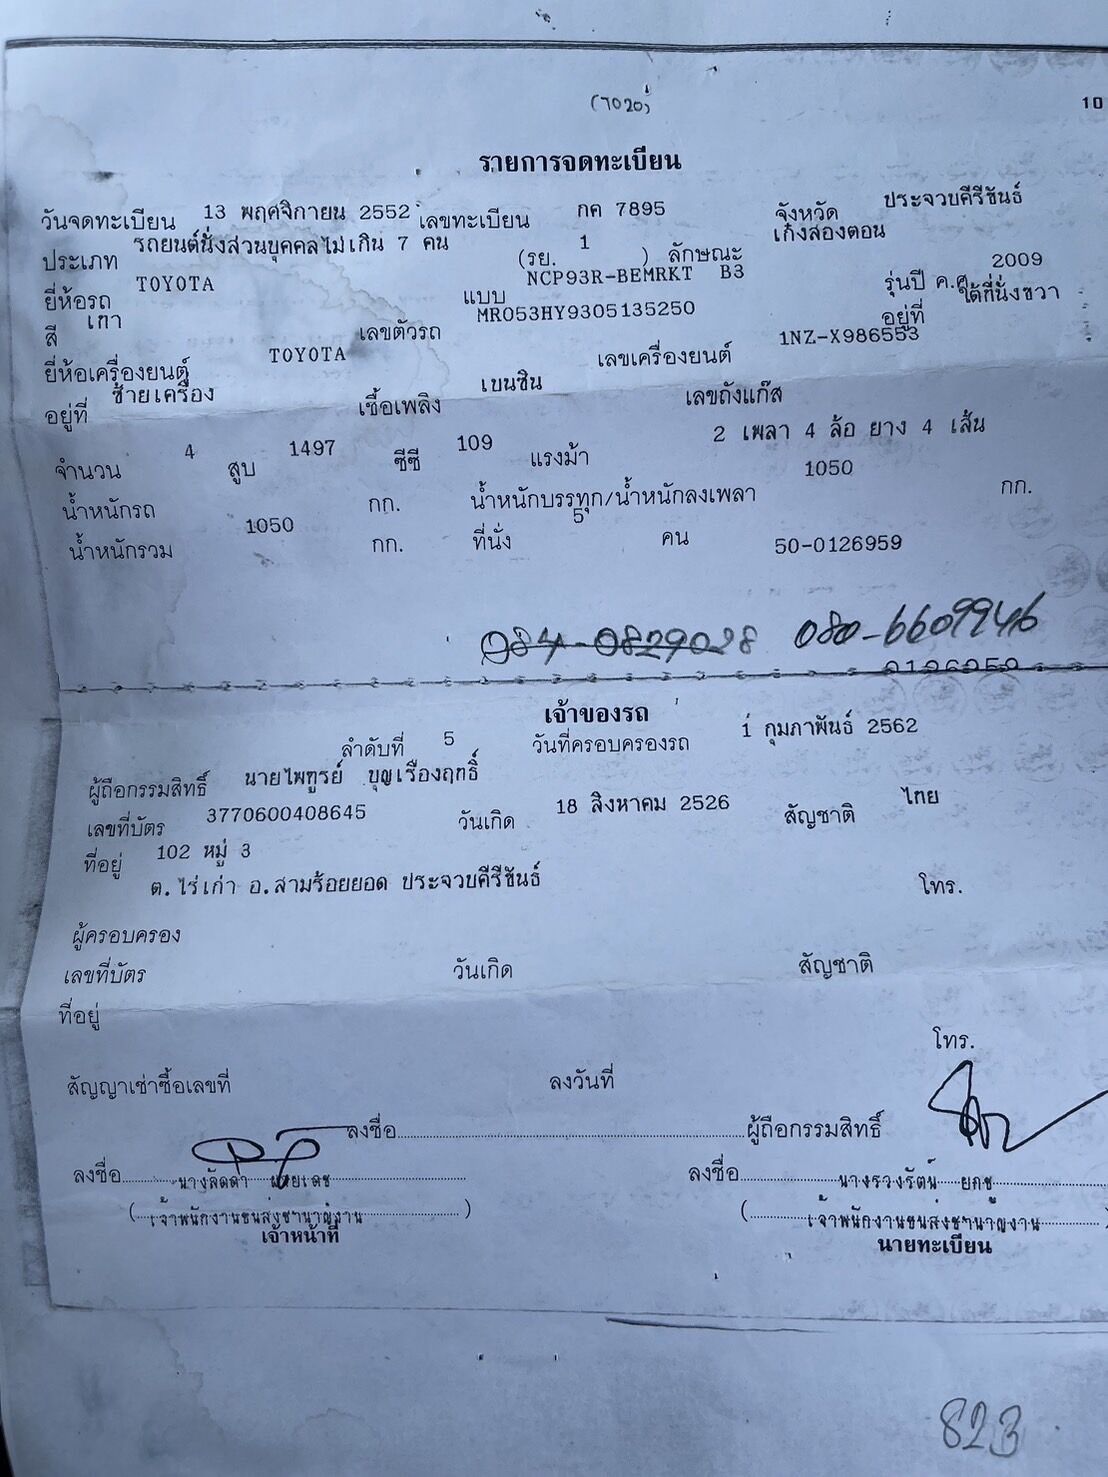 (7020)
10
รายการจดทะเบียน
วันจดทะเบียน 13 พฤศจิกายน 2552 เลขทะเบียน กค 7895 จังหวัด ประจวบคีรีขันธ์
ประเภท รถยนต์นั่งส่วนบุคคลไม่เกิน 7 คน (รย. 1 ) ลักษณะ เก๋งสองตอน
ยี่ห้อรถ TOYOTA แบบ NCP93R-BEMRKT B3 รุ่นปี ค.ศ. 2009
สี เทา เลขตัวรถ MR053HY9305135250 อยู่ที่ ใต้ที่นั่งขวา
ยี่ห้อเครื่องยนต์ TOYOTA เลขเครื่องยนต์ 1NZ-X986553
อยู่ที่ ซ้ายเครื่อง เชื้อเพลิง เบนซิน เลขถังแก๊ส
จำนวน 4 สูบ 1497 ซีซี 109 แรงม้า 2 เพลา 4 ล้อ ยาง 4 เส้น
น้ำหนักรถ 1050 กก. น้ำหนักบรรทุก/น้ำหนักลงเพลา 1050 กก.
น้ำหนักรวม กก. ที่นั่ง 5 คน 50-0126959
084-0829028 080-6609946
0126959
เจ้าของรถ
ลำดับที่ 5 วันที่ครอบครองรถ 1 กุมภาพันธ์ 2562
ผู้ถือกรรมสิทธิ์ นายไพฑูรย์ บุญเรืองฤทธิ์
เลขที่บัตร 3770600408645 วันเกิด 18 สิงหาคม 2526 สัญชาติ ไทย
ที่อยู่ 102 หมู่ 3
ต.ไร่เก่า อ.สามร้อยยอด ประจวบคีรีขันธ์ โทร.
ผู้ครอบครอง
เลขที่บัตร วันเกิด สัญชาติ
ที่อยู่
โทร.
สัญญาเช่าซื้อเลขที่ ลงวันที่
ลงชื่อ ผู้ถือกรรมสิทธิ์
ลงชื่อ นางลัดดา ลงชื่อ นางรวงรัตน์ ยกชู
( เจ้าพนักงานขนส่งชำนาญงาน ) ( เจ้าพนักงานขนส่งชำนาญงาน )
เจ้าหน้าที่ นายทะเบียน
823